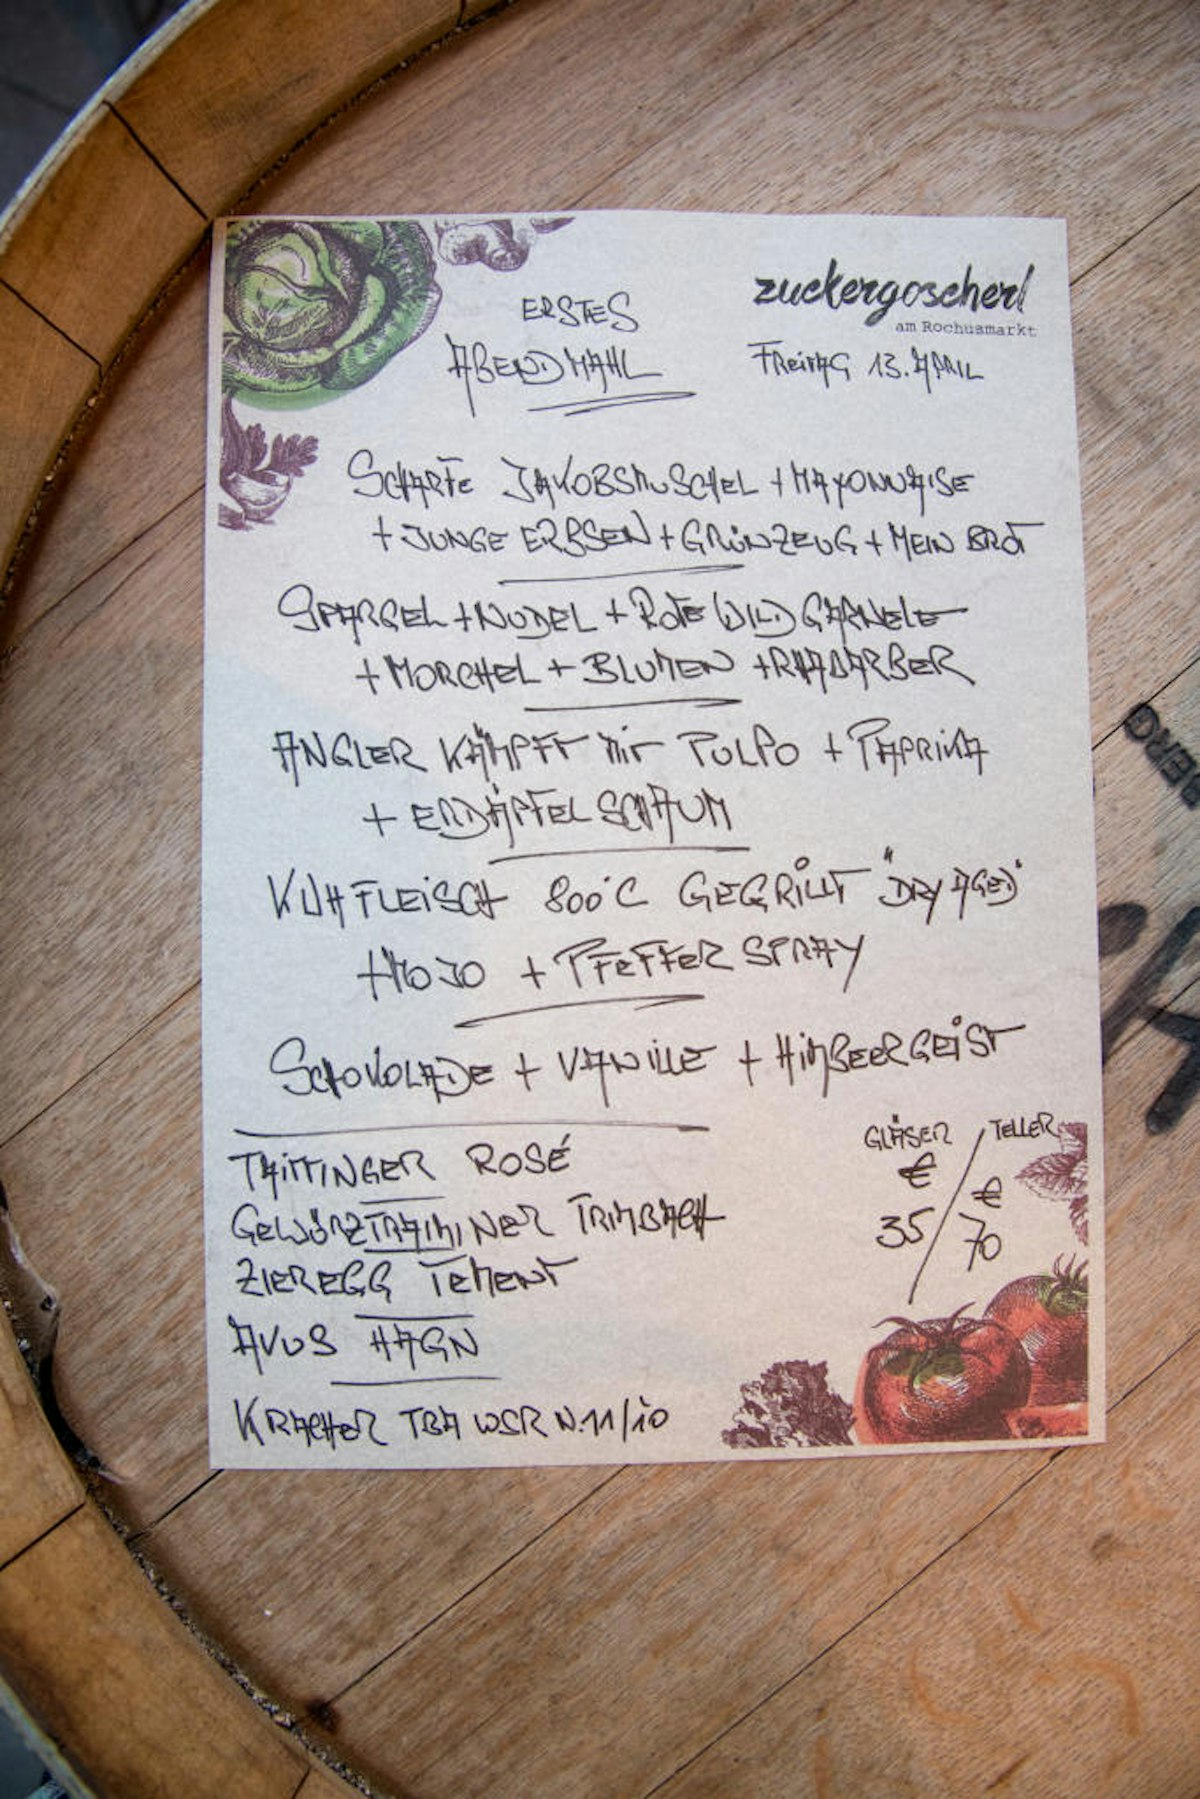 zuckergoscherl
am Rochusmarkt
ERSTES
ABENDMAHL
FREITAG 13. APRIL
SCHARFE JAKOBSMUSCHEL + MAYONNAISE
+ JUNGE ERBSEN + GRÜNZEUG + MEIN BROT
SPARGEL + NUDEL + ROTE WILDGARNELE
+ MORCHEL + BLUMEN + RHABARBER
ANGLER KÄMPFT MIT PULPO + PAPRIKA
+ ERDÄPFELSCHAUM
KUHFLEISCH 800°C GEGRILLT "DRY AGED"
+ MOJO + PFEFFERSPRAY
SCHOKOLADE + VANILLE + HIMBEERGEIST
GLÄSER / TELLER
€ / €
35 / 70
TAITTINGER ROSÉ
GEWÜRZTRAMINER TRIMBACH
ZIEREGG TEMENT
AVUS HAGN
KRACHER TBA WSR N. 11/10
BERG